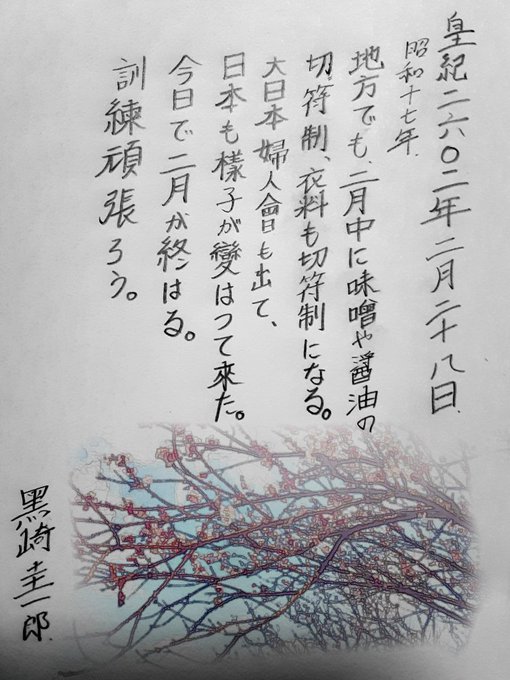 皇紀二六〇二年二月二十八日
昭和十七年.
地方でも、二月中に味噌や醤油の
切符制、衣料も切符制になる。
大日本婦人會も出て、
日本も様子が變はつて来た。
今日で二月が終はる。
訓練頑張ろう。
黒崎圭一郎